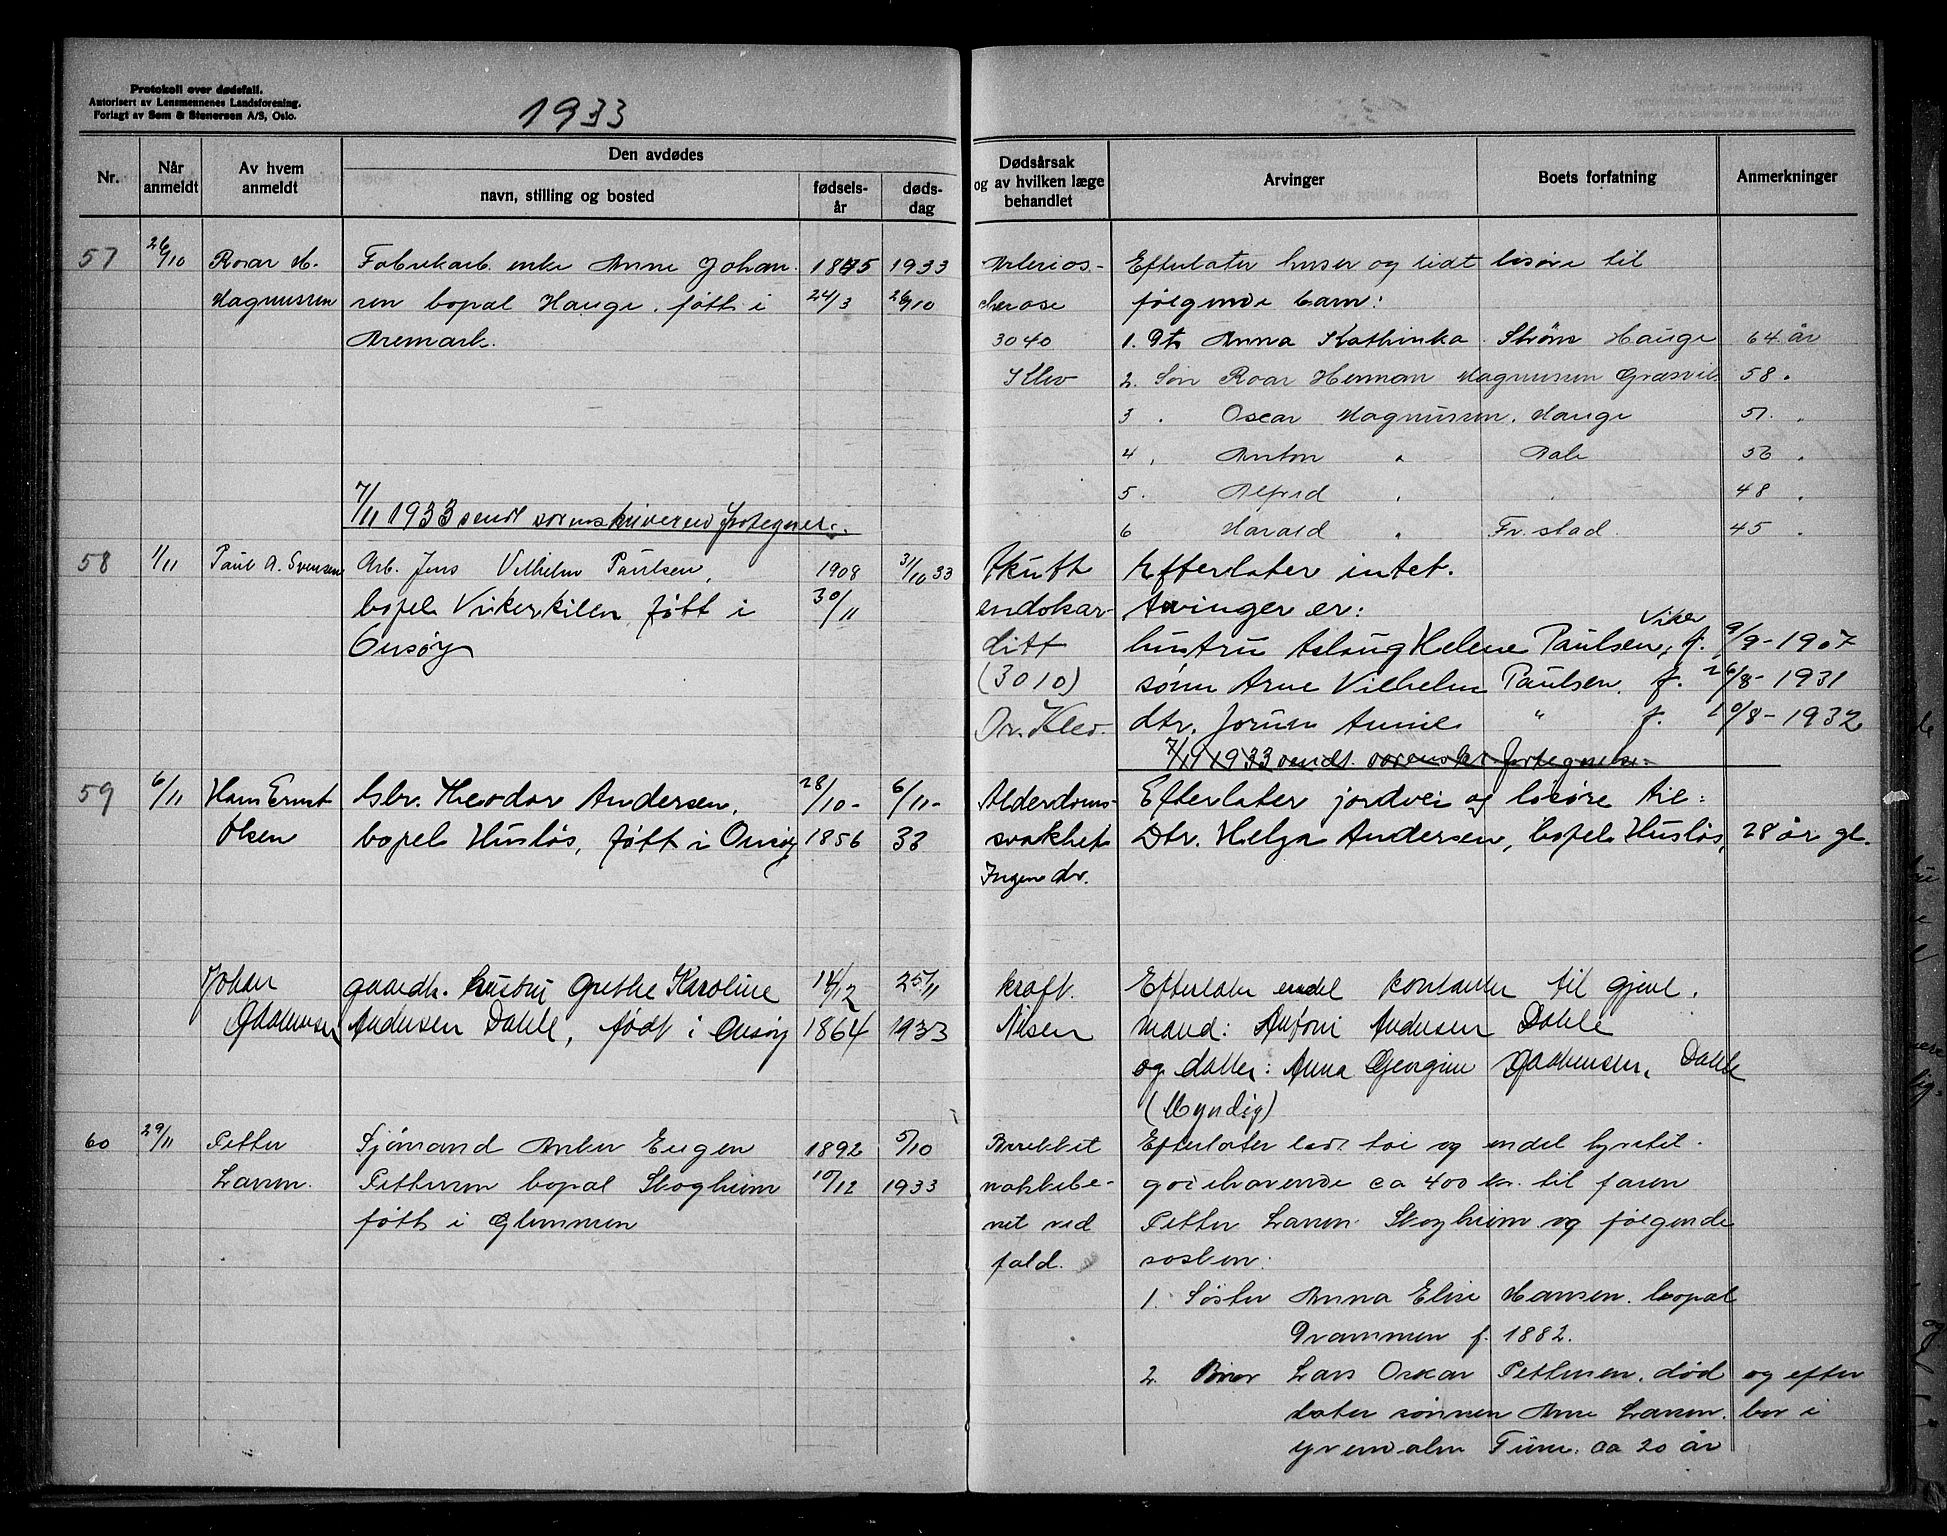 Protokoll over dødsfall.
Autorisert av Lensmennenes Landsforening.
Forlagt av Sem & Stenersen A/S, Oslo.
1933
Nr.
Når anmeldt
Av hvem anmeldt
Den avdødes
navn, stilling og bosted
fødsels-år
døds-dag
Dødsårsak og av hvilken læge behandlet
Arvinger
Boets forfatning
Anmerkninger
57 26/10 Roar H. Fabrikarb. enke Anne Johan- 1845 1933
Magnussen sen bopel Hauge, født i 24/3 26/10
Aremark.
7/11 1933 sendt sorenskriveren fortegnelse.
Arterios-
clerose
3040
Klev
Efterlater huser og lidt løsøre til
følgende barn:
1. Dtr Anna Kathinka Strøm Hauge 64 år
2. Søn Roar Herman Magnussen Græsvik 58 "
3 " Oscar Magnussen, Hauge 51 "
4 " Anton " Dale 53 "
5 " Alfred " " 48 "
6 Harald " Fr.stad 45 "
58 1/11 Paul A. Svensen Arb. Jens Vilhelm Paulsen, 1908 31/10 33
bopel Vikerkilen, født i 30/11
Onsøy
Akutt
endokar-
ditt
(3010)
Dr. Klev.
Efterlater intet.
Arvinger er:
hustru Aslaug Helene Paulsen, Viker f. 9/9-1907
sønn Arne Vilhelm Paulsen, f. 26/8-1931
dtr. Jorunn Annie " f. 10/8-1932
7/11 1933 sendt sorenskr. fortegnelse.
59 6/11 Hans Ernst Gbr. Theodor Andersen, 28/10- 6/11-
Olsen bopel Husløs, født i Onsøy 1856 33
Alderdoms-
svakhet
Ingen dr.
Efterlater jordvei og løsøre til:
Dtr. Helga Andersen, bopel Husløs, 28 år gl.
Johan gaardb. hustru Grethe Karoline 14/12 25/11
Andersen Dahle, født i Onsøy 1864 1933
kræft.
Nilsen
Efterlater endel kontanter til gjenl.
mand: Anton Andersen Dahle
og datter: Anna Georgine Dahle
(Myndig)
60 29/11 Petter Sjømand Anker Eugen 1892 5/10
Larsen. Pettersen bopel Skogheim 10/12 1933
født i Glemmen
Brækket
nakkebe-
net ved
fald.
Efterlater lidt tøi og endel hyretil-
godehavende ca 400 kr. til faren
Petter Larsen Skogheim og følgende
søsken:
1. Søster Anna Elise Hansen, bopel
Drammen f. 1882.
2. Bror Lars Oskar Pettersen, død og efter
later sønnen Arne Larsen, bor i
Fune, ca 20 år